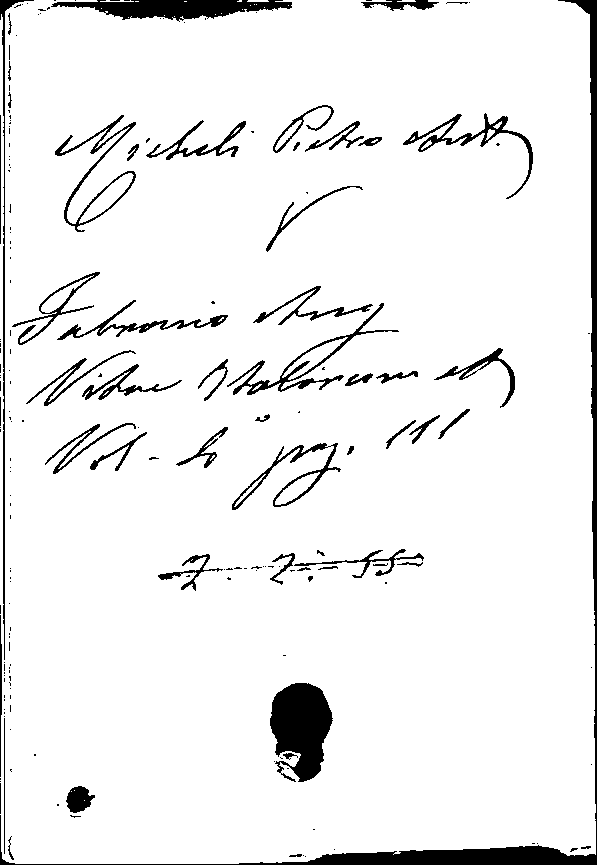 Micheli Pietro Ant.
V
Fabronio Ang
Vitae Italorum etc
Vol - 4° pag. 111
2. 2. 55